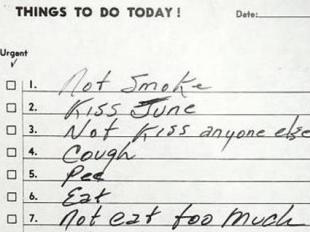 THINGS TO DO TODAY! Date:
Urgent
1. Not Smoke
2. Kiss June
3. Not Kiss anyone else
4. Cough
5. Pee
6. Eat
7. Not eat too much